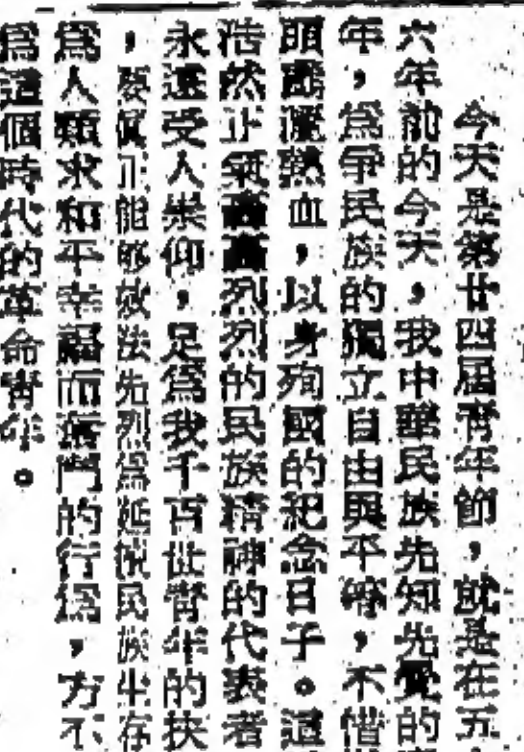 今天是第廿四屆青年節，就是在五
六年前的今天，我中華民族先知先覺的
年，爲爭民族的獨立自由與平等，不惜
頭顱灑熱血，以身殉國的紀念日子。這
浩然正氣轟轟烈烈的民族精神的代表者
永遠受人崇仰，足爲我千百世青年的
，要眞正能够效法先烈爲延續民族生存
爲人類求和平幸福而奮鬥的行爲，方不
爲這個時代的革命青年。